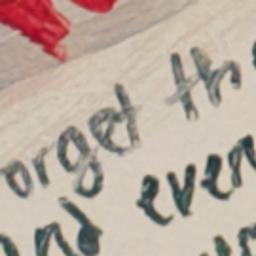 orget th
nd even